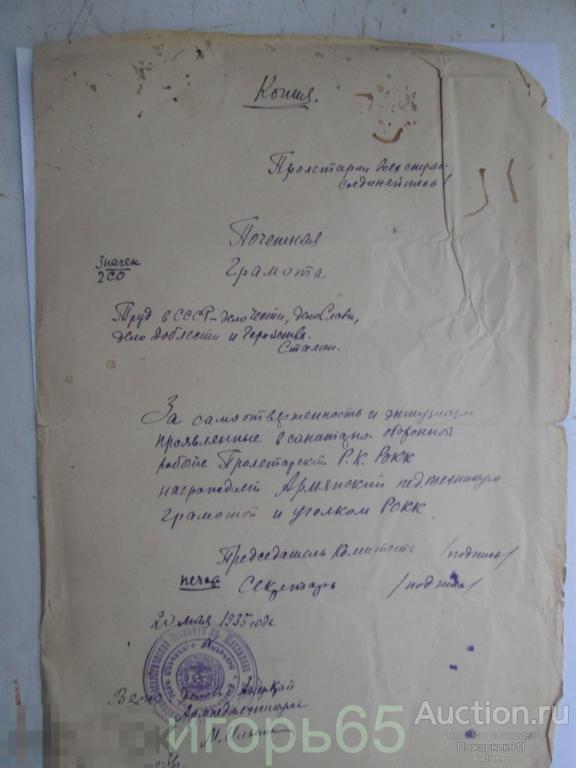 Копия.
Пролетарии всех стран
соединяйтесь!
Почетная
Грамота
Значек
ГСО
Труд в СССР – дело Чести, дело Славы,
дело Доблести и Геройства.
Сталин.
За самоотверженность и энтузиазм
проявленные в санитарно оборонной
работе Пролетарский Р.К. РОКК
награждает Армянский пед. техникум
грамотой и уголком РОКК
Председатель Комитета /подпись/
печать Секретарь /подпись/
20 мая 1935 года
Верно:
Армпедтехникума
игорь65
Auction.ru
торговая площадка
Пожарник911
auction.ru